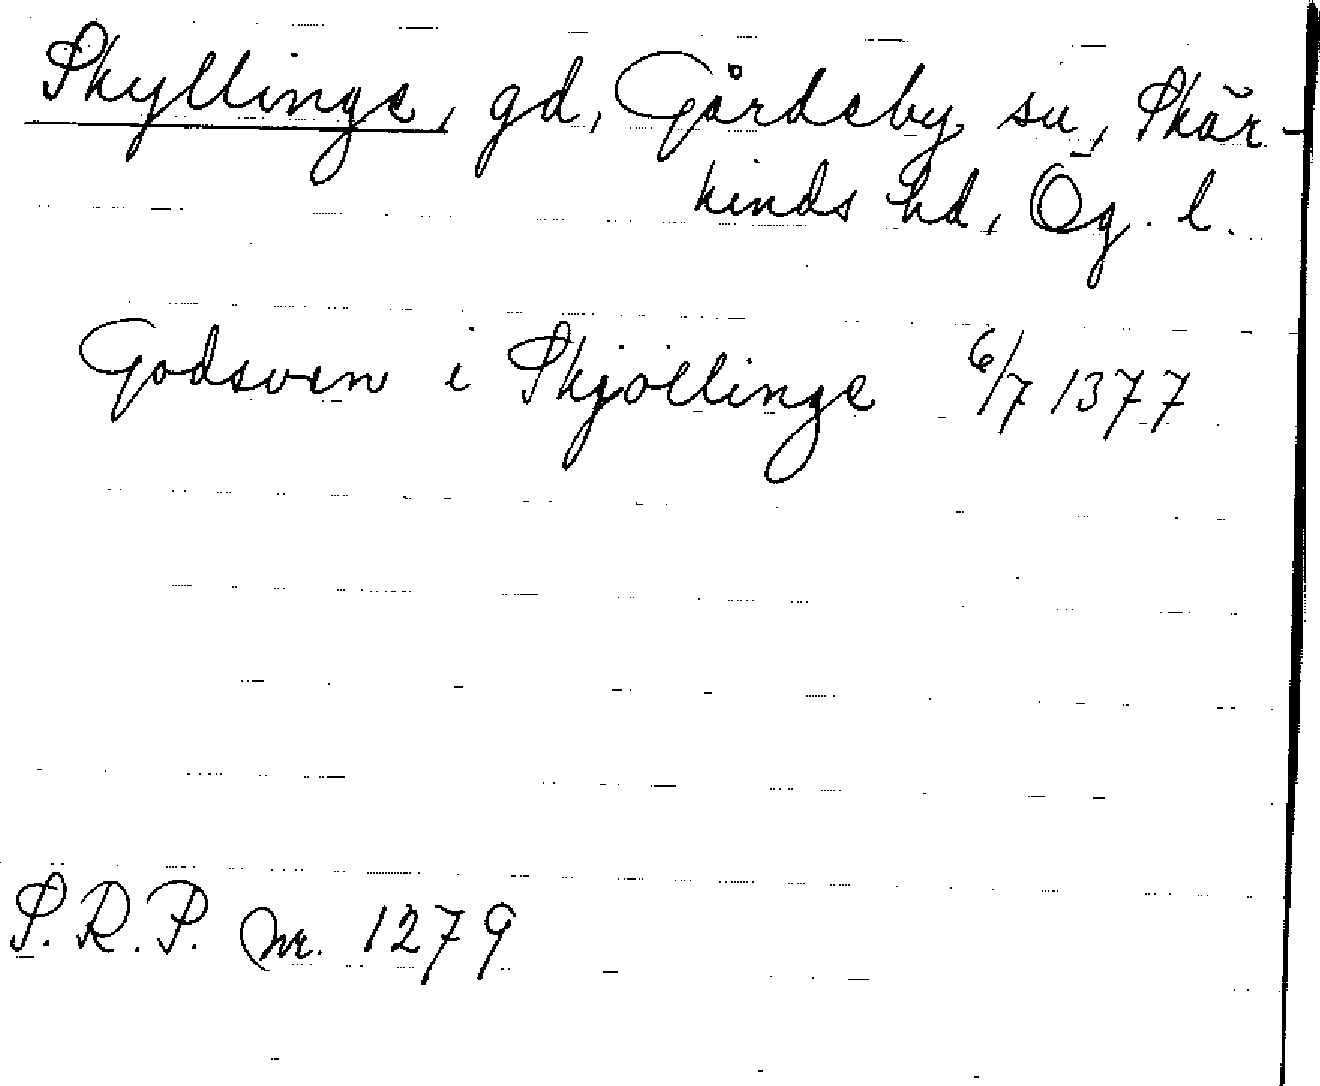 Skyllinge, gd, Gårdeby sn, Skär-
kinds hd, Ög. l.
Godsven i Skjollinge 6/7 1377
S.R.P. nr. 1279